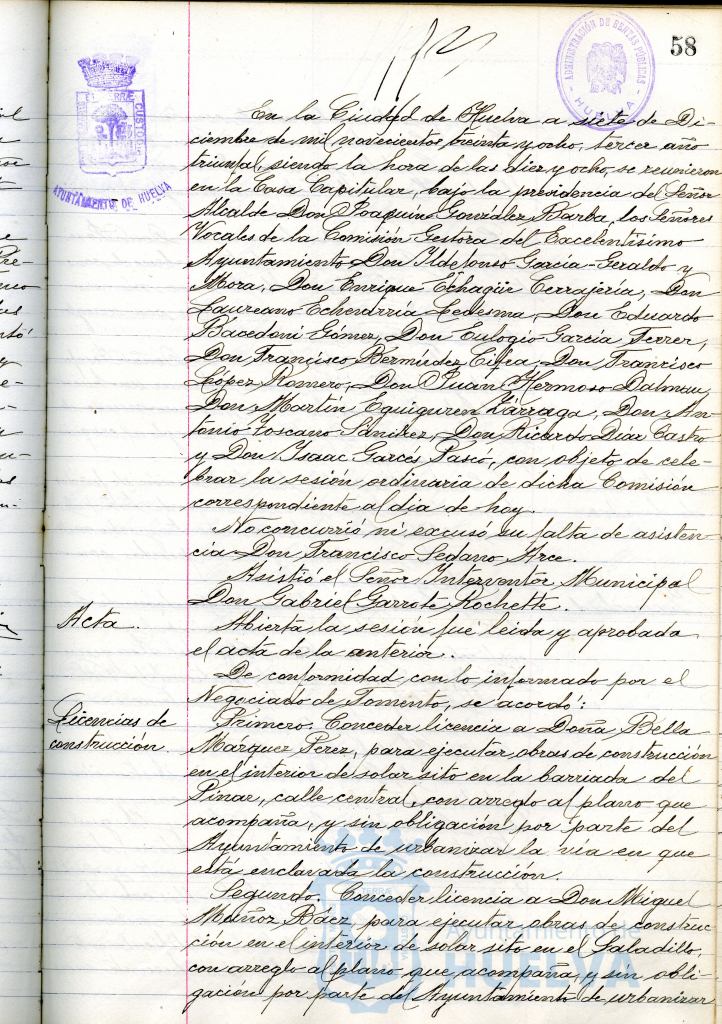 58
ADMINISTRACIÓN DE RENTAS PÚBLICAS
HUELVA
AYUNTAMIENTO DE HUELVA
En la Ciudad de Huelva a siete de Di-
ciembre de mil novecientos treinta y ocho, tercer año
triunfal, siendo la hora de las diez y ocho, se reunieron
en la Casa Capitular, bajo la presidencia del Señor
Alcalde Don Joaquín González Barba, los Señores
Vocales de la Comisión Gestora del Excelentísimo
Ayuntamiento Don Ildefonso García-Geraldo y
Mora, Don Enrique Echagüe Cerrajería, Don
Laureano Echevarría Ledesma, Don Eduardo
Bacedoni Gómez, Don Eulogio García Ferrer,
Don Francisco Bermúdez Cifra, Don Francisco
López Romero, Don Juan Hermoso Dalmau,
Don Martín Eguiguren Lárraga, Don An-
tonio Toscano Sánchez, Don Ricardo Díaz Castro
y Don Isaac Garcés Pascó, con objeto de cele-
brar la sesión ordinaria de dicha Comisión
correspondiente al día de hoy.
No concurrió ni excusó su falta de asisten-
cia Don Francisco Sedano Arce.
Asistió el Señor Interventor Municipal
Don Gabriel Garrote Rochette.
Acta.
Abierta la sesión fué leida y aprobada
el acta de la anterior.
De conformidad con lo informado por el
Negociado de Fomento, se acordó:
Licencias de
construcción.
Primero. Conceder licencia a Doña Bella
Márquez Pérez, para ejecutar obras de construcción
en el interior de solar sito en la barriada del
Pinar, calle central, con arreglo al plano que
acompaña, y sin obligación por parte del
Ayuntamiento de urbanizar la via en que
está enclavada la construcción.
Segundo. Conceder licencia a Don Miguel
Muñoz Báez, para ejecutar obras de construc-
ción en el interior de solar sito en el Saladillo,
con arreglo al plano que acompaña, y sin obli-
gación por parte del Ayuntamiento de urbanizar
Ayuntamiento de
HUELVA